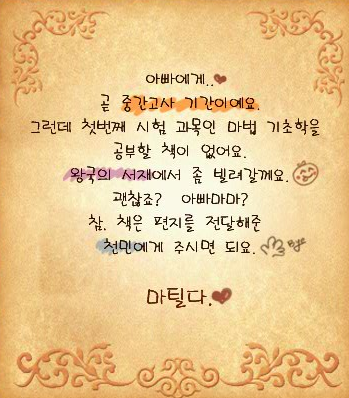 아빠에게..
곧 중간고사 기간이에요.
그런데 첫번째 시험 과목인 마법 기초학을
공부할 책이 없어요.
왕국의 서재에서 좀 빌려갈께요.
괜찮죠? 아빠마마?
참. 책은 편지를 전달해준
천민에게 주시면 되요.
마틸다.